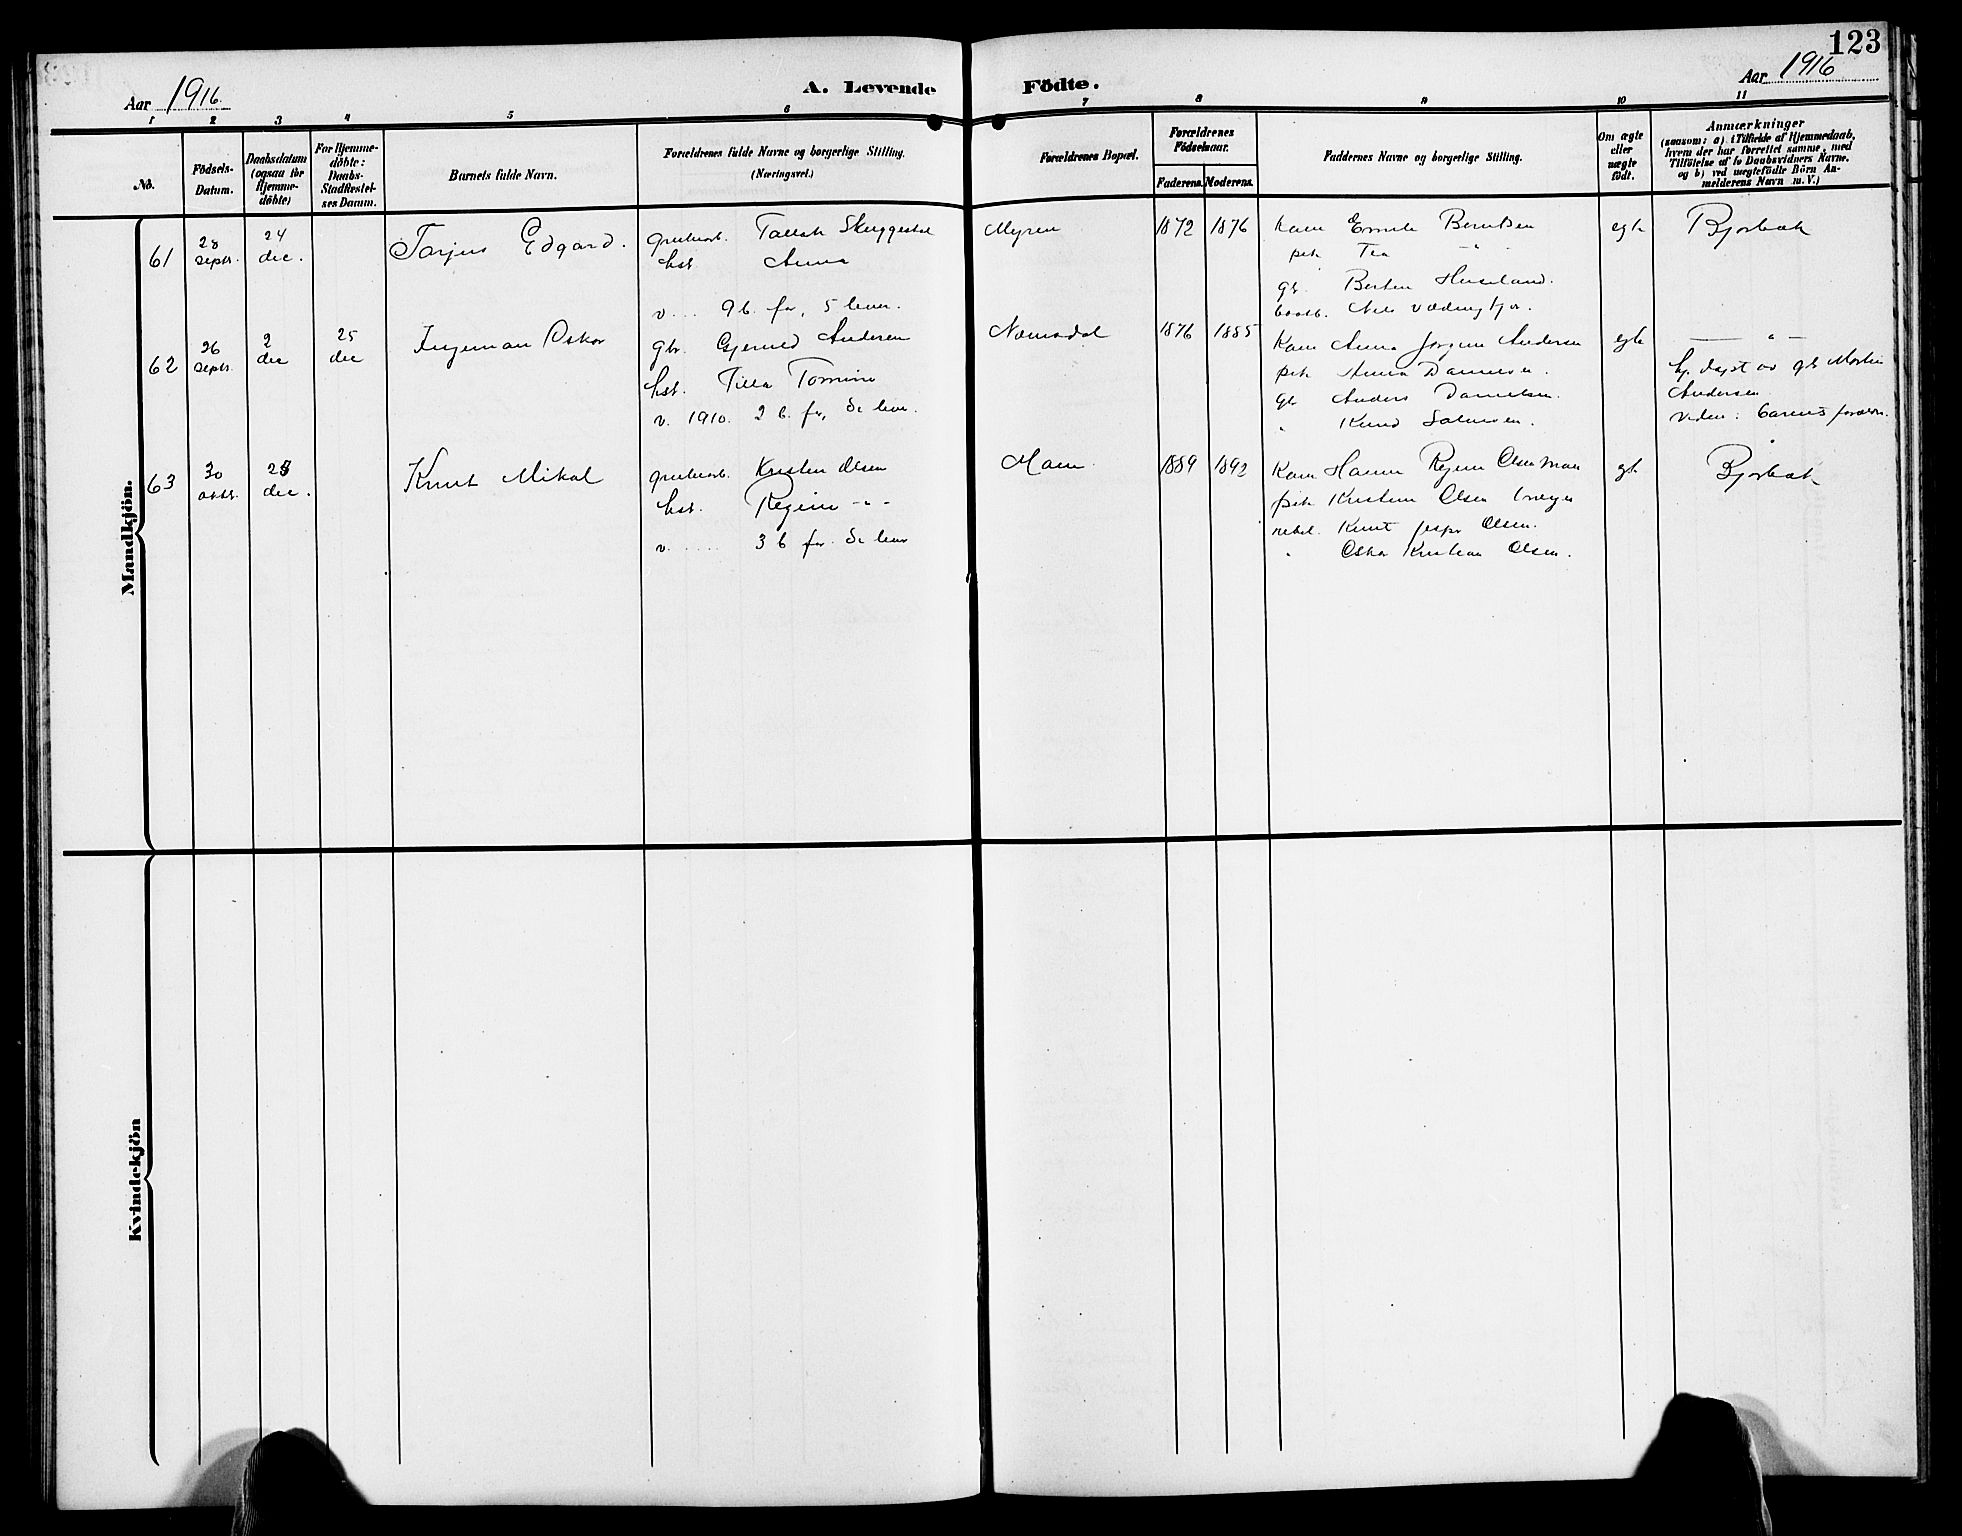 123
Aar 1916.
A. Levende Födte.
Aar 1916
1 2 3 4 5 6 7 8 9 10 11
No.
Födsels-Datum.
Daabsdatum (ogsaa for Hjemme-döbte)
For Hjemme-döbte: Daabs-Stadfæstel-ses Datum.
Barnets fulde Navn.
Forældrenes fulde Navne og borgerlige Stilling.
(Næringsvei.)
Forældrenes Bopæl.
Forældrenes Födselsaar.
Faderens. Moderens.
Faddernes Navne og borgerlige Stilling.
Om ægte eller uægte födt.
Anmærkninger
(saasom: a) i Tilfælde af Hjemmedaab,
hvem der har forrettet samme, med
Tilföielse af to Daabsvidners Navne.
og b) ved uægtefödte Börn An-
melderens Navn m. V.)
Mandkjön.
61
28 septr.
24 dec.
Tarjus Edgard.
Tallak Skuggestad
hst. Anna
v. ... 9 b. før, 5 lever.
Myren
1872 1876
Kone Emilie Berntsen
pik Tea - " -
gb. Berten Huseland.
Nils
egte
Bjorbæk
62
26 septr.
2 dec
25 dec
Ingeman Oskar
gbr. Gjerulf Andersen
hst. Tilla Tomine
v. 1910. 2 b. før, de lever.
Næmsdal
1876 1885
Kone Anna Jørgine Andersen
pik Anna Danielsen.
gb Anders Danielsen.
" Knud
egte
— " —
hj. døpt av gb Martin
Andersen
Viden: barnets foræld.
63
30 oktr.
dec.
Knut Mikal
Kristen Olsen
hst. Regine - " -
v. ..... 3 b før. de lever
Moen
1889 1892
Kone Hanne Regine Olsen Moen
pik Kristine Olsen
Knut Jesper Olsen.
" Oskar Kristian Olsen.
egte
Bjorbæk
Kvindekjön